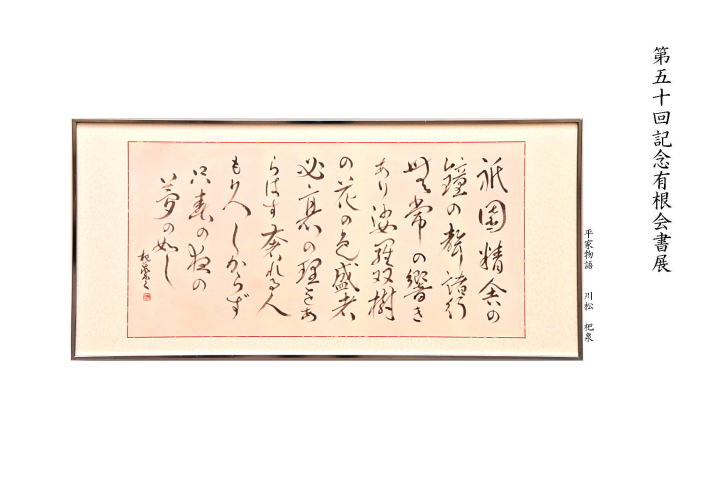 第五十回記念有根会書展
平家物語　川松　杞泉
祇園精舎の
鐘の聲諸行
無常の響き
あり娑羅双樹
の花の色盛者
必衰の理をあ
らはす奢れる人
も久しからず
只春の夜の
夢の如し